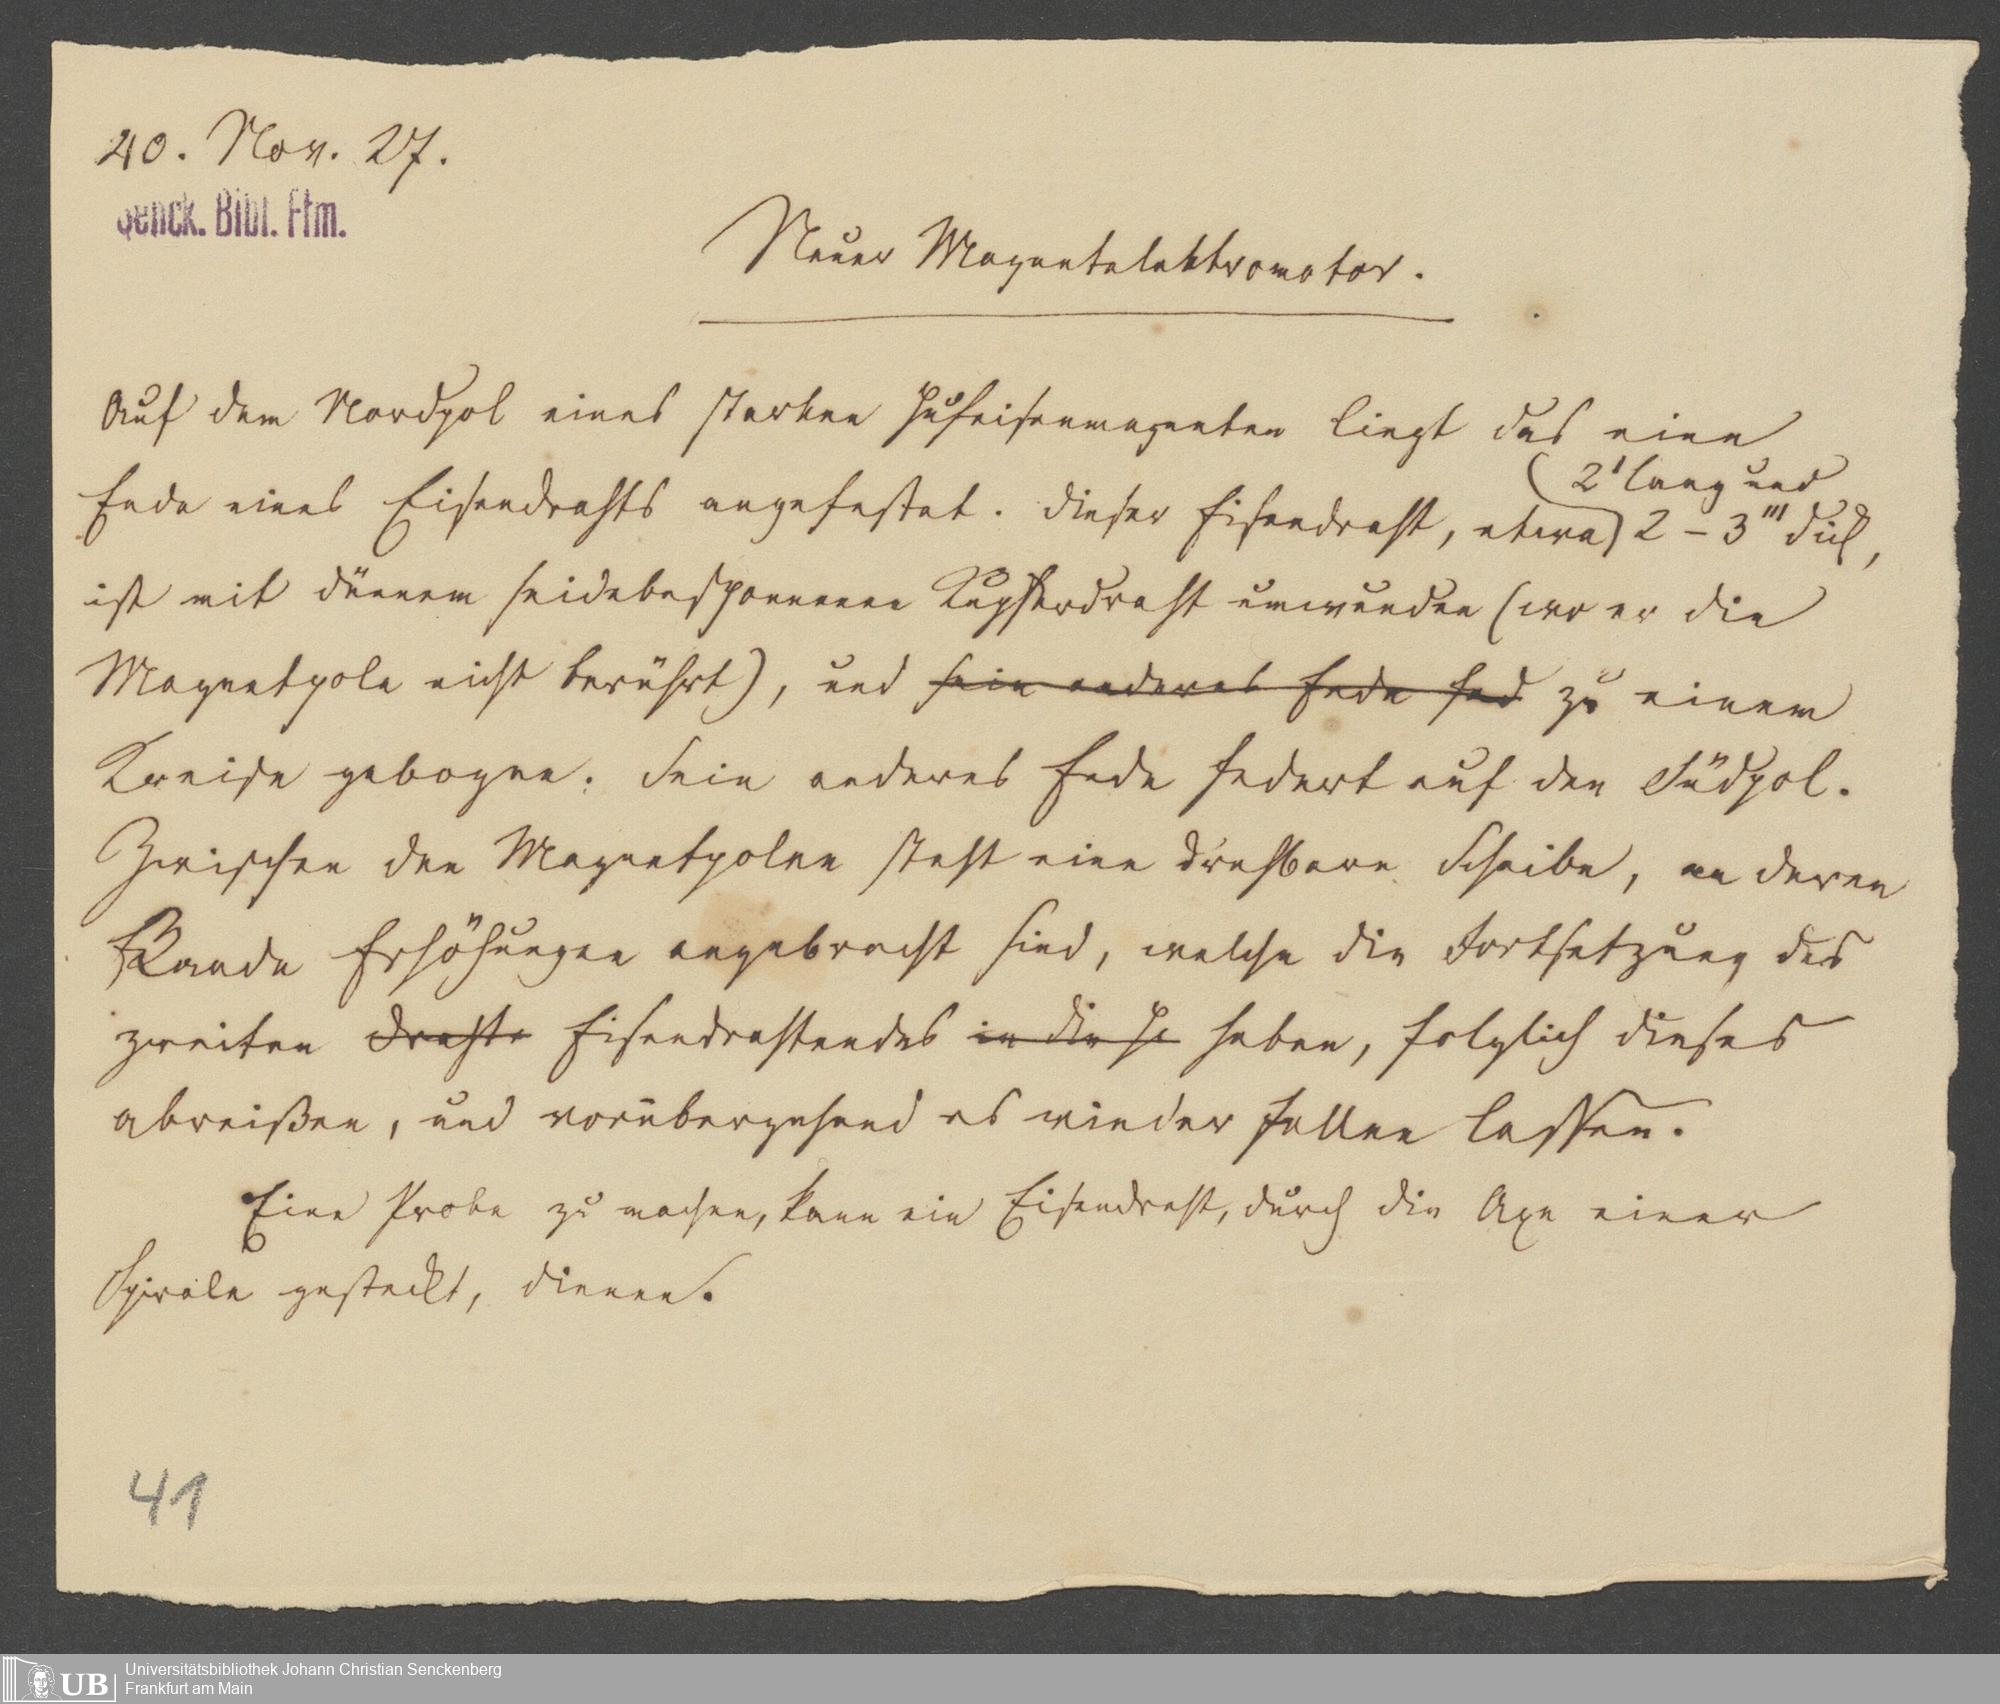 40. Nov. 27.
Senck. Bibl. Ffm.
Neuer Magnetelektromotor.
Auf dem Nordpol eines starken Hufeisenmagneten liegt das eine
Ende eines Eisendrahts angefestet. Dieser Eisendraht, etwa (2' lang und) 2 – 3''' dick,
ist mit dünnem seidebesponnenen Kupferdraht umwunden (wo er die
Magnetpole nicht berührt), und sein anderes Ende fed zu einem
Kreise gebogen. Sein anderes Ende federt auf den Südpol.
Zwischen den Magnetpolen steht eine drehbare Scheibe, an deren
Rande Erhöhungen angebracht sind, welche die Fortsetzung des
zweiten Drahte Eisendrahtendes in die H haben, folglich dieses
abreißen, und vorübergehend es wieder fallen lassen.
Eine Probe zu machen, kann ein Eisendraht, durch die Axe einer
Spirale gesteckt, dienen.
41
UB Universitätsbibliothek Johann Christian Senckenberg
Frankfurt am Main